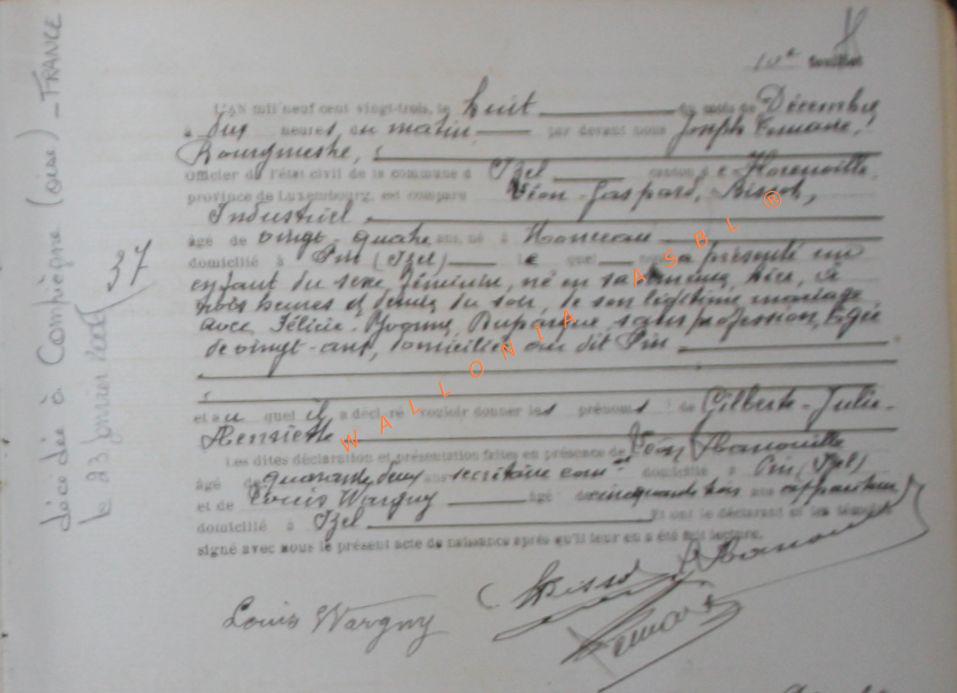 10e feuillet
L'AN mil neuf cent vingt-trois, le huit du mois de Décembre
à dix heures du matin par devant nous Joseph
Bourgmestre,
Officier de l'état civil de la commune d Izel canton d e Florenville
province de Luxembourg, est comparu Léon-Gaspard, Bissot,
Industriel
âgé de vingt-quatre ans, né à
domicilié à Pin (Izel) le quel nous a présenté un
enfant du sexe féminin, né en sa demeure, hier, à
trois heures et demie du soir, de son légitime mariage
avec Félicie-Yvonne, sans profession, âgée
de vingt ans, domiciliée au dit Pin
et au quel il a déclaré vouloir donner les prénoms de Gilberte-Julie-
Henriette
Les dites déclaration et présentation faites en présence de Léon Hanouille
âgé de quarante deux ans secrétaire comal domicilié à Pin (Izel)
et de Louis Wargny âgé de cinquante trois ans appariteur
domicilié à Izel Et ont le déclarant et les témoins
signé avec nous le présent acte de naissance après qu'il leur en a été fait lecture.
Louis Wargny
LBissot
37
décédée à Compiègne (oise) - FRANCE
le 23 janvier
WALLONIA ASBL ®